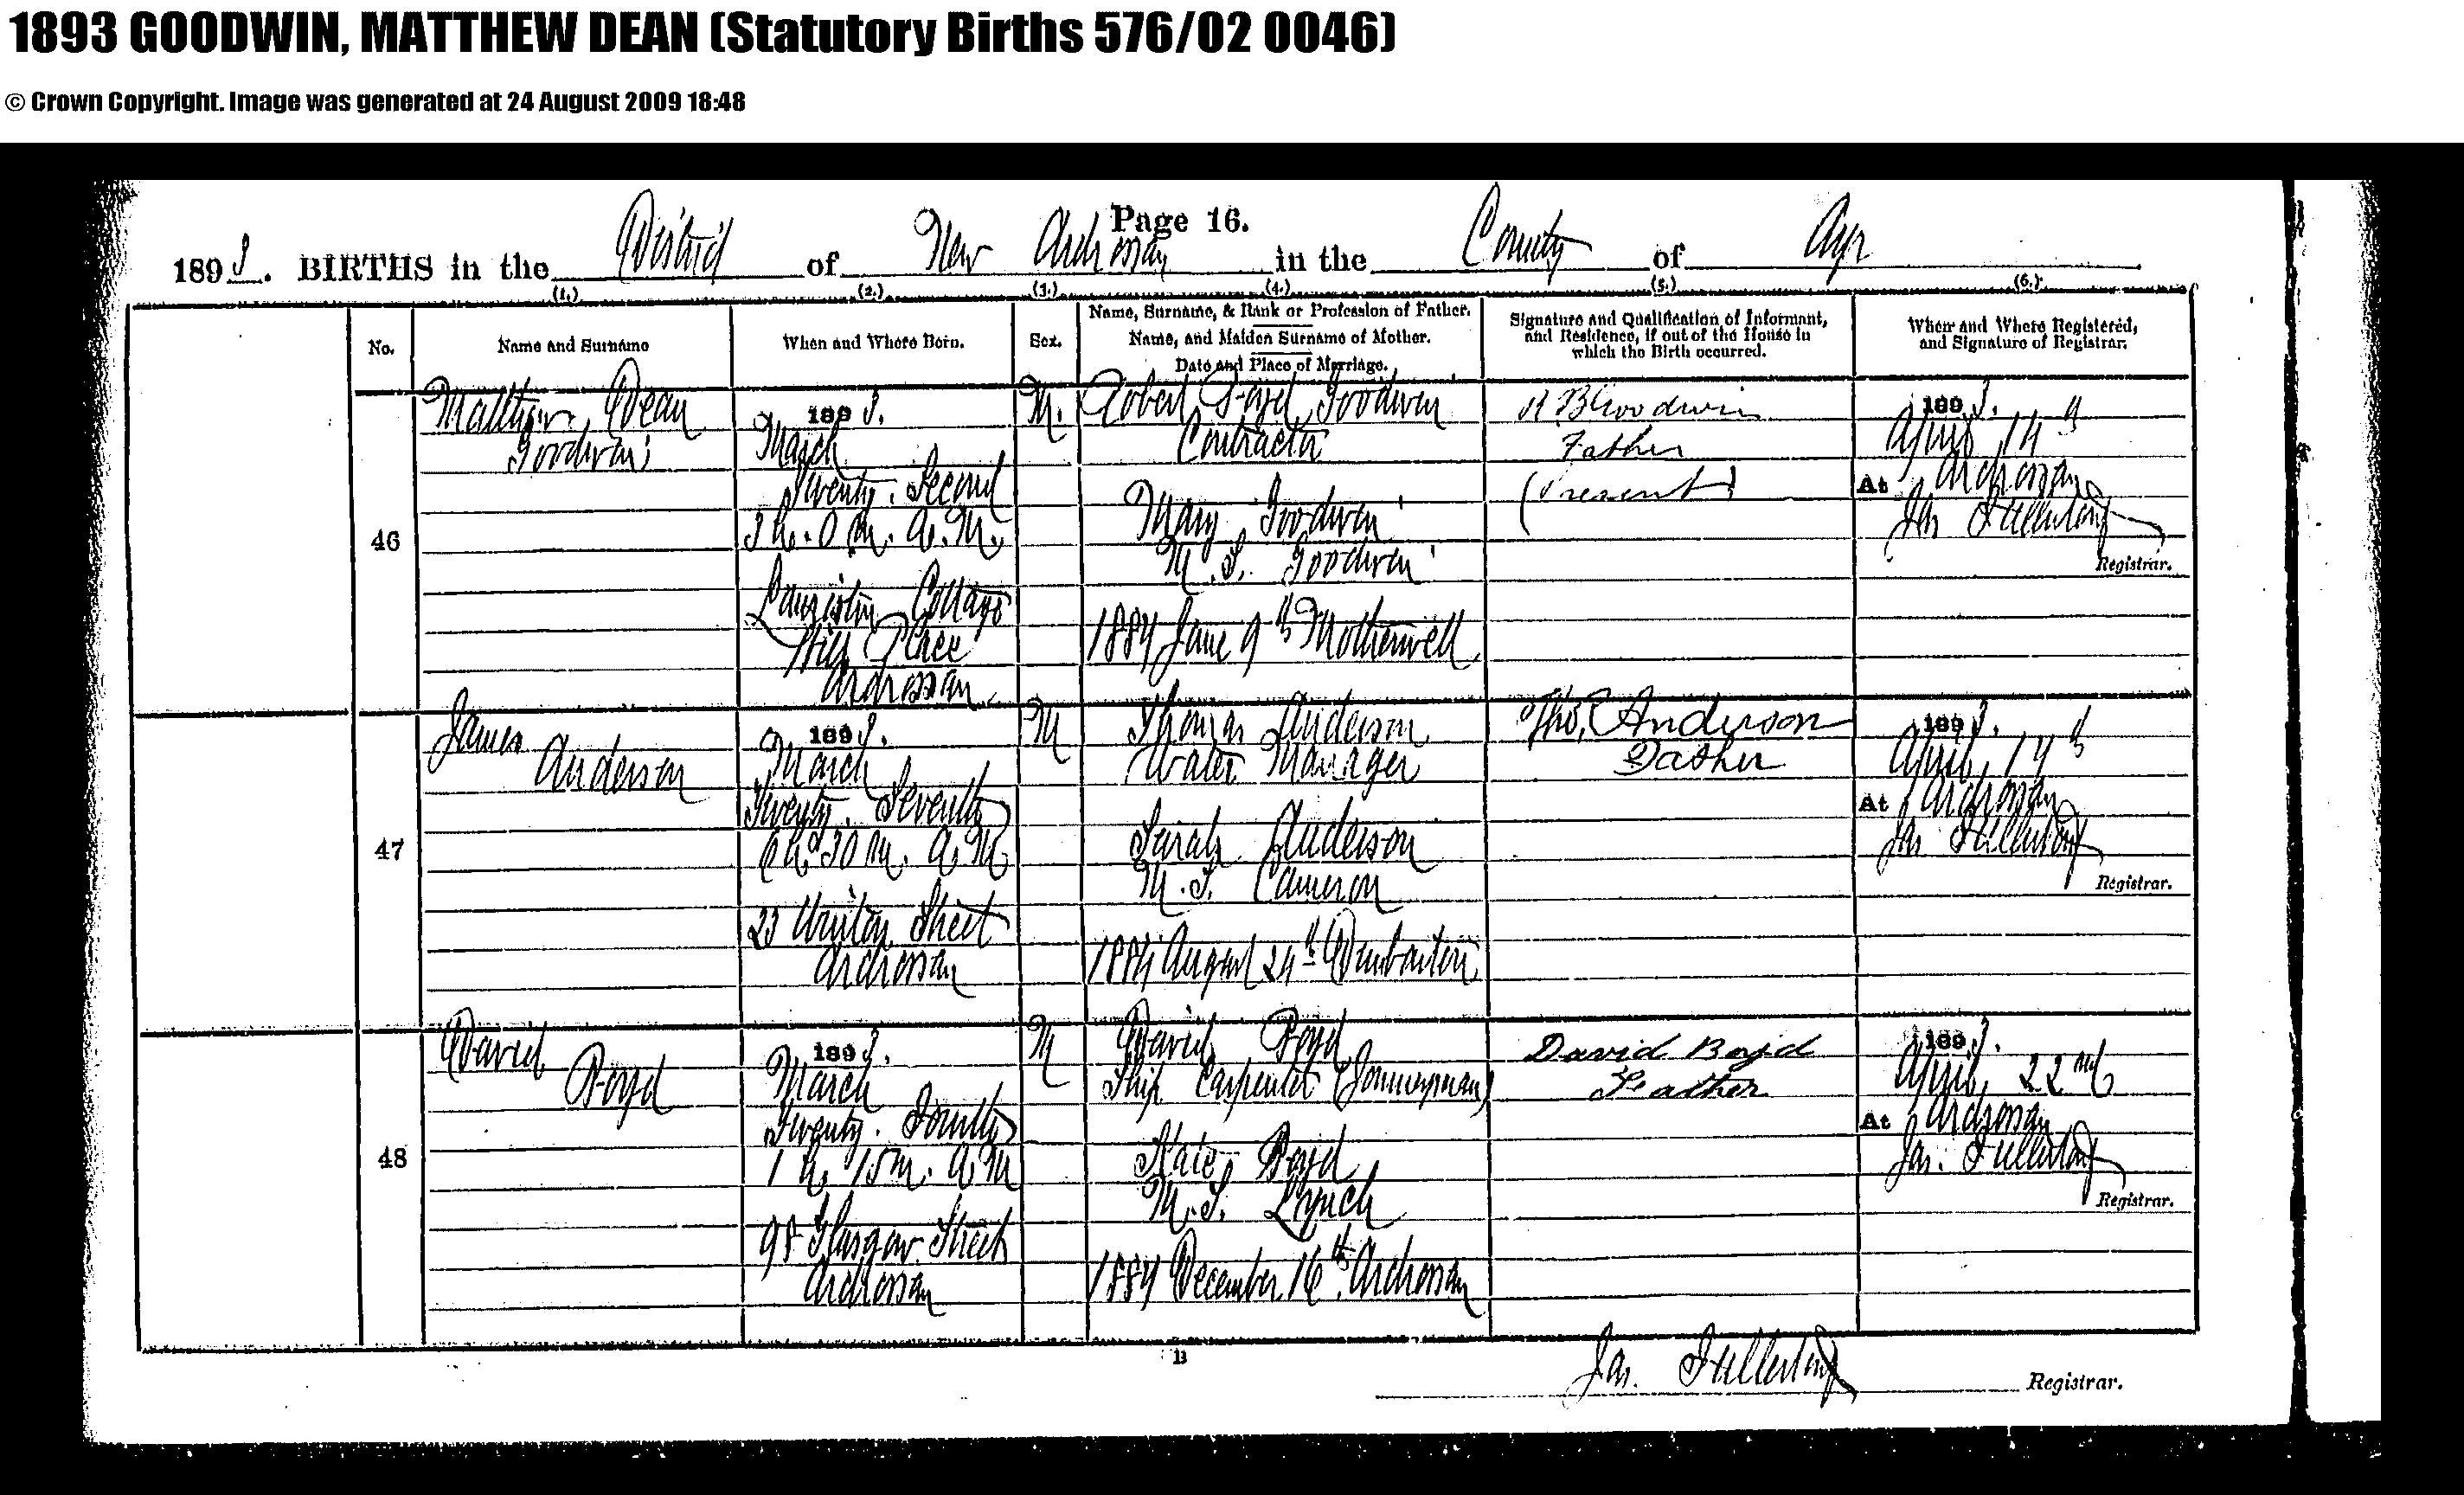 1893 GOODWIN, MATTHEW DEAN (Statutory Births 576/02 0046)
© Crown Copyright. Image was generated at 24 August 2009 18:48
Page 16.
1893. BIRTHS in the District of New Ardrossan in the County of Ayr
(1.) (2.) (3.) (4.) (5.) (6.)
No.
Name and Surname
When and Where Born.
Sex.
Name, Surname, & Rank or Profession of Father.
Name, and Maiden Surname of Mother.
Date and Place of Marriage.
Signature and Qualification of Informant,
and Residence, if out of the House in
which the Birth occurred.
When and Where Registered,
and Signature of Registrar.
46
Matthew Dean
Goodwin
1893.
March
Twenty. Second
3 h. 0 m. A.M.
Cottage
Hill Place
Ardrossan.
M.
Robert Boyd Goodwin
Contractor
Mary Goodwin
M.S. Goodwin
1884 June 9th Motherwell
R B Goodwin
Father
(Present)
1893.
April 14th
At Ardrossan
Jas Fullerton
Registrar.
47
James
Anderson
1893.
March
Twenty. Seventh
6 h. 30 m. A.M
23 Winton Street
Ardrossan
M
Thomas Anderson
Water Manager
Sarah Anderson
M.S. Cameron
1884 August 24th Dumbarton
Tho. Anderson
Father
1893.
April 14th
At Ardrossan
Jas Fullerton
Registrar.
48
David
Boyd
1893.
March
Twenty. Fourth
1 h. 15 m. A.M
Glasgow Street
Ardrossan
M
David Boyd
Ship Carpenter (Journeyman)
Kate Boyd
M.S. Lynch
1884 December 16th Ardrossan
David Boyd
Father
1893.
April 22nd
At Ardrossan
Jas. Fullerton
Registrar.
B
Jas. Fullerton Registrar.